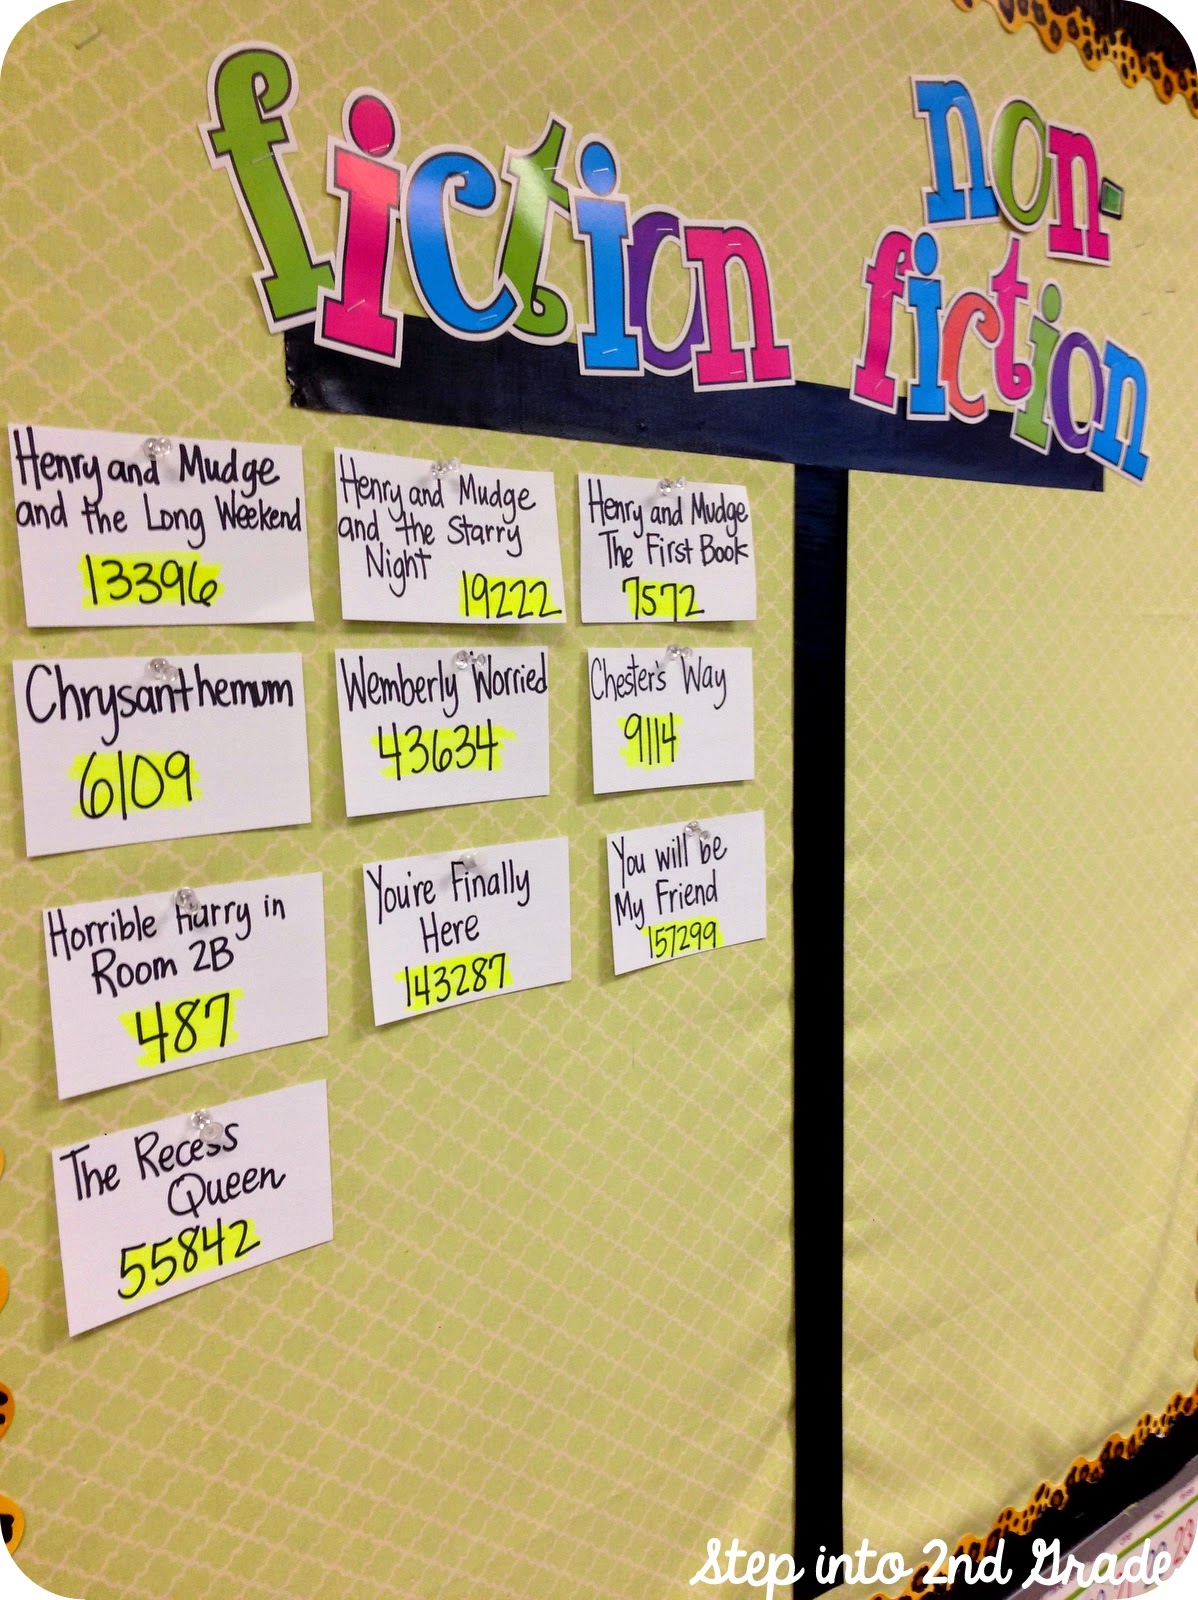 fiction
non-
fiction
Henry and Mudge
and the Long Weekend
13396
Henry and Mudge
and the Starry
Night
19222
Henry and Mudge
The First Book
7572
Chrysanthemum
6109
Wemberly Worried
43634
Chester's Way
9114
Horrible Harry in
Room 2B
487
You're Finally
Here
143287
You will be
My Friend
157299
The Recess
Queen
55842
Step into 2nd Grade